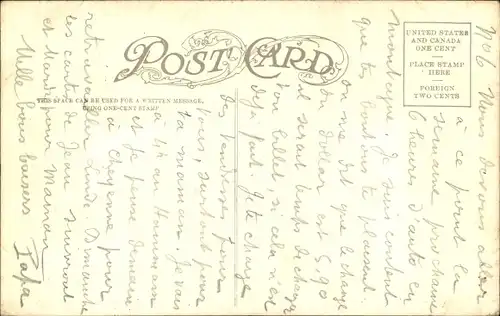 POST CARD
THIS SPACE CAN BE USED FOR A WRITTEN MESSAGE,
USING ONE-CENT STAMP
UNITED STATES
AND CANADA
ONE CENT
PLACE STAMP
HERE
FOREIGN
TWO CENTS
No 6 Nous devons aller
à ce point la
semaine prochaine
6 heures d'auto en
montagne. Je suis content
que tes boutons te plaisent.
on me dit que le change
du dollar est 5,90
il serait temps de changer
ton billet, si cela n'est
déjà fait. Je te charge
des tendresses pour
tous, surtout pour
ta maman. Je vais
à
et je pense demain
à Cheyenne pour
retravailler Lundi. Dimanche
les cartes de Jean suivront
et Mardi pour Maman
Mille bons baisers
Papa